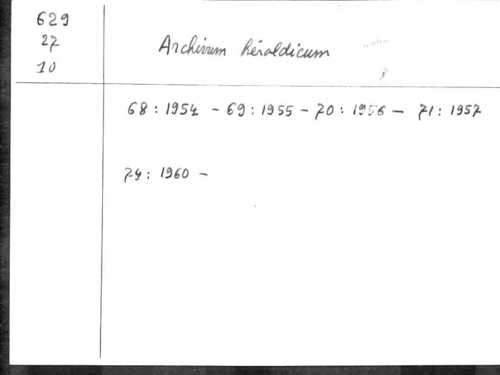 629
27
10
Archivum héraldicum
68 : 1954 - 69 : 1955 - 70 : 1956 - 71 : 1957
74 : 1960 -